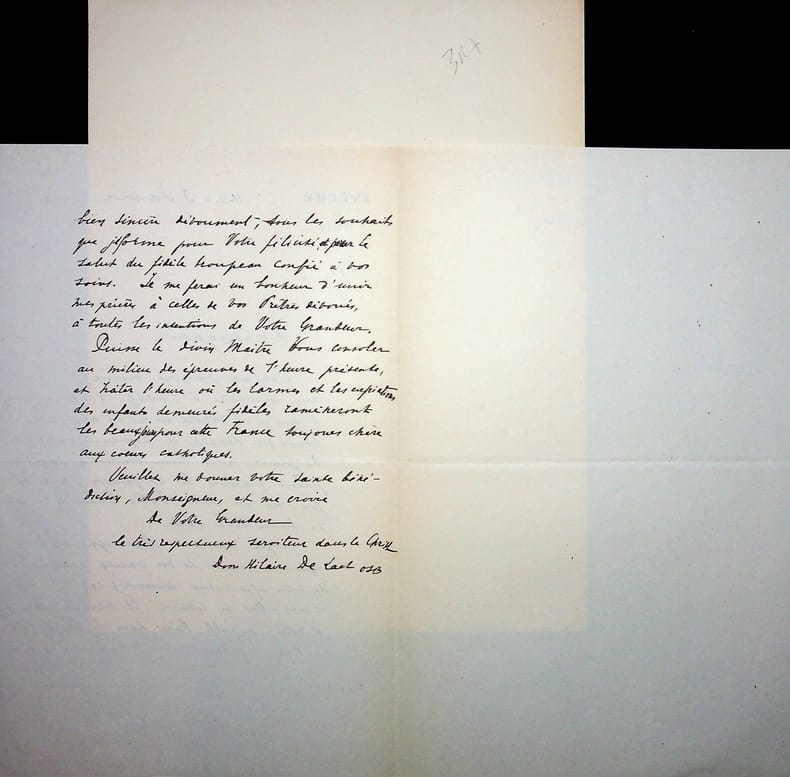 3R7
bien sincère dévouement, tous les souhaits
que je forme pour Votre félicité, et pour le
salut du fidèle troupeau confié à vos
soins. Je me ferai un bonheur d'unir
mes prières à celles de vos Prêtres dévoués,
à toutes les intentions de Votre Grandeur.
Puisse le divin Maître Vous consoler
au milieu des épreuves de l'heure présente,
et hâter l'heure où les larmes et les expiations
des enfants demeurés fidèles ramèneront
les beaux jours pour cette France toujours chère
aux coeurs catholiques.
Veuillez me donner votre sainte béné-
diction, Monseigneur, et me croire
De Votre Grandeur
le très respectueux serviteur dans le Christ
Dom Hilaire De Laet OSB